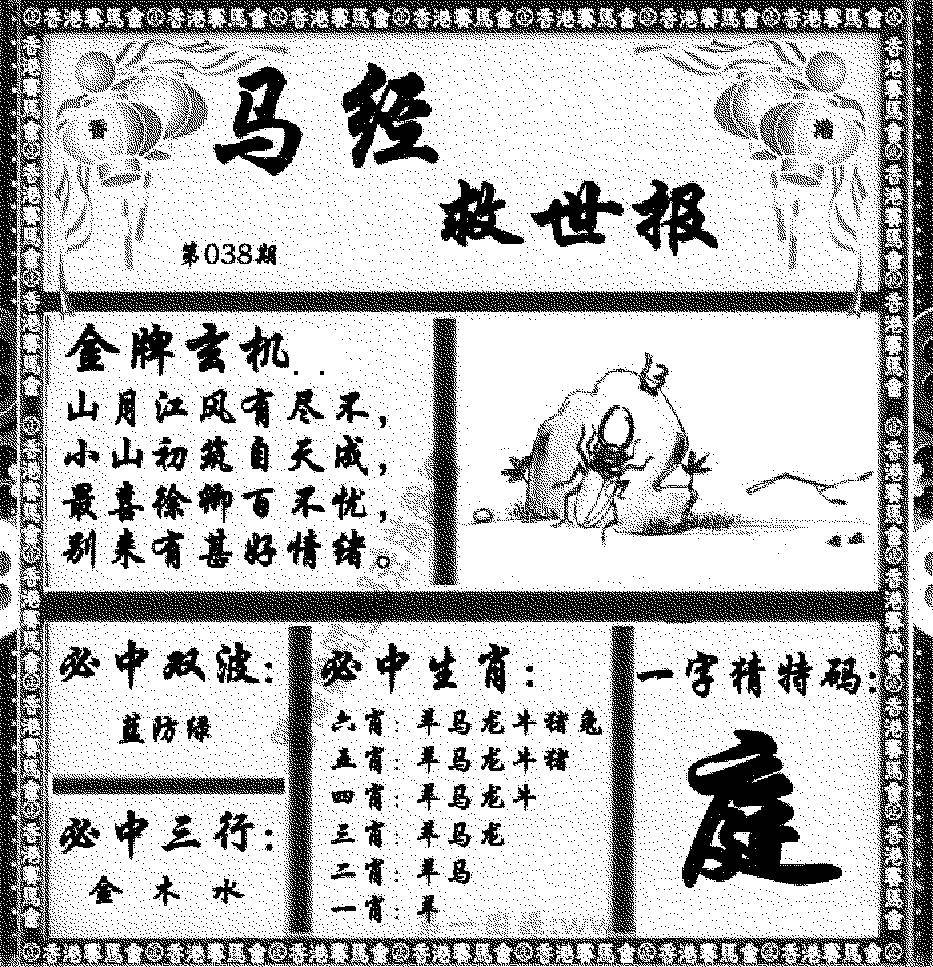 香港賽馬會香港賽馬會香港賽馬會香港賽馬會香港賽馬會香港賽馬會香港賽馬會
香
港
马经
救世报
第038期
金牌玄机..
山月江风有尽不,
小山初筑自天成,
最喜徐卿百不忧,
别来有甚好情绪。
必中双波:
蓝防绿
必中三行:
金 木 水
必中生肖:
六肖: 羊马龙牛猪兔
五肖: 羊马龙牛猪
四肖: 羊马龙牛
三肖: 羊马龙
二肖: 羊马
一肖: 羊
一字猜特码:
庭
香港賽馬會香港賽馬會香港賽馬會香港賽馬會香港賽馬會香港賽馬會香港賽馬會